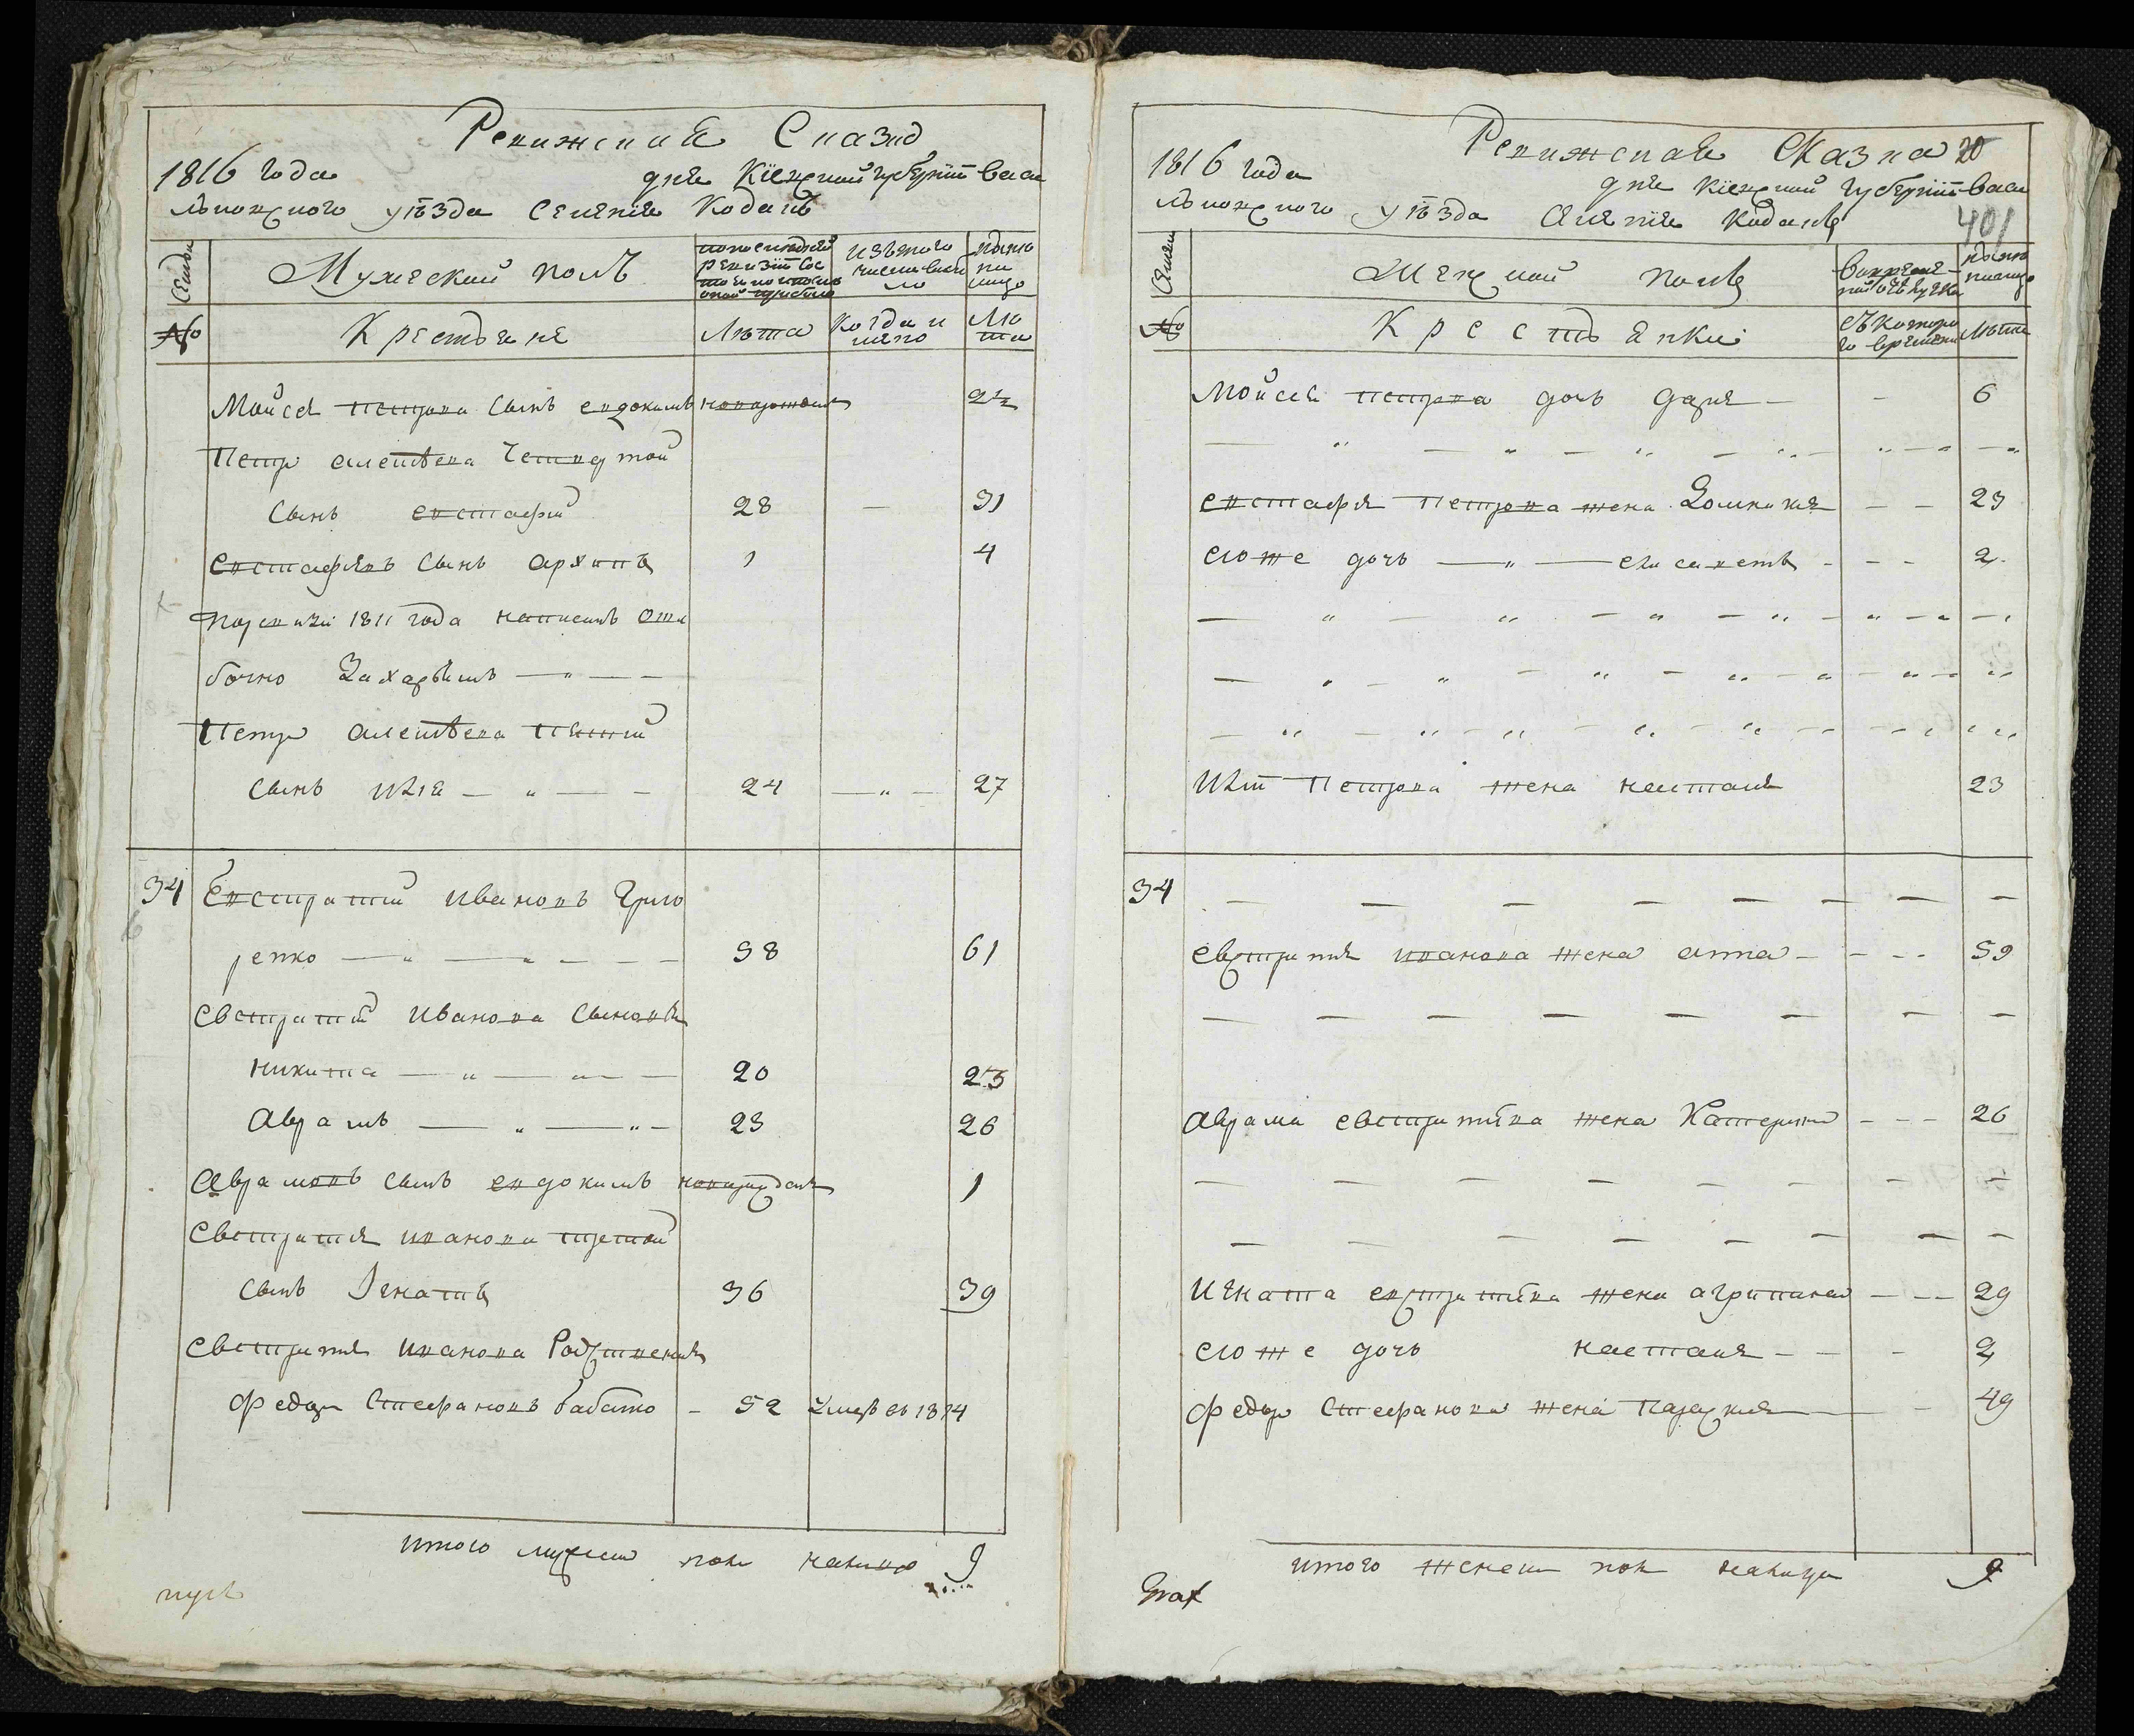 Ревижская Сказка
1816 года дня Кіевской губерніи Васи
льковского уѣзда селенія Кодаки
Семьи
Мужеский полъ
по последней ревизіи состояло и после оной прибыло
изъ того числа выбыло
ныне на лицо
№
Крестьяне
Лѣта
Когда и имено
Лѣта
Мойсея Петрова сынъ евдокимъ новорожденъ
Петра алексѣева Четвертой
сынъ евстафій 28 — 31
евстафіевъ сынъ архипъ 1 4
По ревизіи 1811 года написанъ оши
бочно Захаріемъ — „ — —
Петра алексѣева Пятій
сынъ илія — „ — — 24 — „ — 27
34 Евстратий Ивановъ Григо
ренко — „ — „ — — — 58 61
евстратия Иванова сыновья
никита — „ — „ — 20 23
аврамъ — „ — „ — 23 26
аврамовъ сынъ евдокимъ новорожденъ 1
евстратия иванова третой
сынъ Игнатъ 36 39
евстратия иванова Родственникъ
федоръ Стефановъ бабато - 52 умеръ въ 1814
итого мужеска пола налицо 9
Ревижская Сказка 20
1816 года дня Кіевской губерніи Васи
льковского уѣзда селенія Кодаки
401
Семьи
Женской полъ
Вовременной отлучке
ныне налицо
№
Крестьянки
съ которого времени
Лѣта
Мойсея Петрова дочь дарія — - 6
евстафія Петрова жена Домникия - - 23
его же дочь — „ — елисаветъ - - - 2
Иліи Петрова жена настасия 23
34 — — — — — — — —
евстратия иванова жена анна - - - - 59
— — — — — — — —
аврама евстратиева жена Катерина - - - 26
— — — — — — — —
— — — — — — — —
игната евстратиева жена агрипина - - - 29
его же дочь настасия - - - 2
федора Стефанова жена Параския — - 49
итого женска пола налицо 9